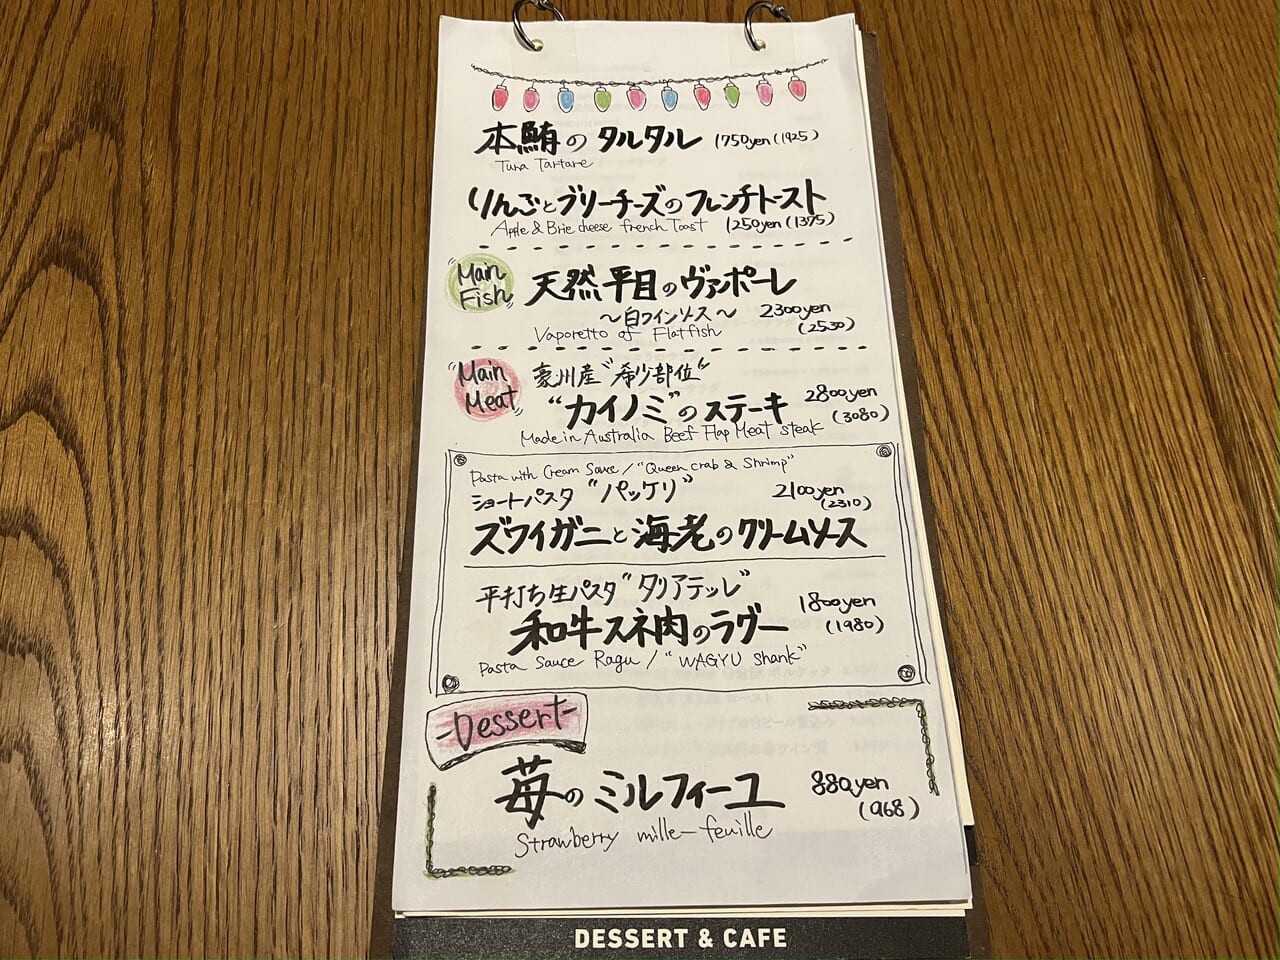 本鮪のタルタル 1750yen(1925)
Tuna Tartare
りんごとブリーチーズのフレンチトースト
Apple & Brie cheese french Toast 1250yen(1375)
Main Fish 天然平目のヴァポーレ
〜白ワインソース〜 2300yen
Vaporetto of Flatfish (2530)
Main Meat 豪州産"希少部位"
"カイノミ"のステーキ 2800yen (3080)
Made in Australia Beef Flap Meat steak
Pasta with Cream Sauce / "Queen crab & Shrimp"
ショートパスタ "パッケリ" 2100yen (2310)
ズワイガニと海老のクリームソース
平打ち生パスタ"タリアテッレ"
和牛スネ肉のラグー 1800yen (1980)
Pasta Sauce Ragu / "WAGYU shank"
-Dessert-
苺のミルフィーユ 880yen (968)
Strawberry mille-feuille
DESSERT & CAFE